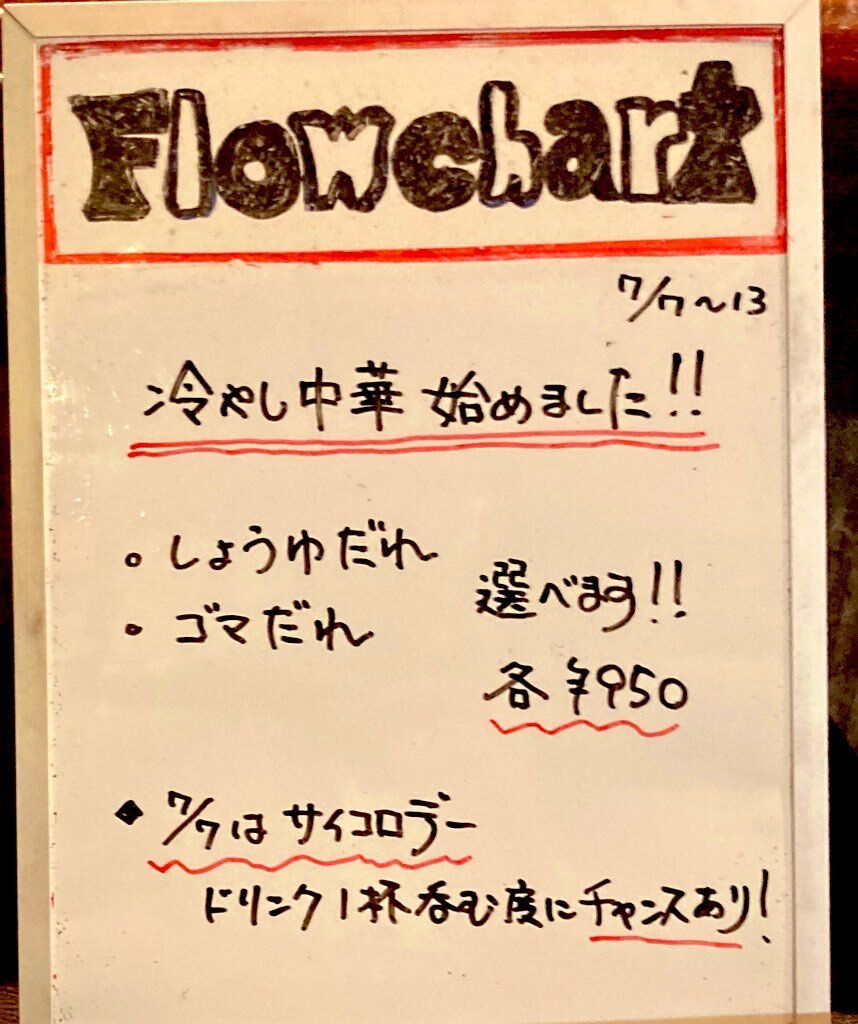 Flowchart
7/7〜13
冷やし中華 始めました!!
。しょうゆだれ
。ゴマだれ
選べます!!
各¥950
◆ 7/7は サイコロデー
ドリンク1杯呑む度にチャンスあり!